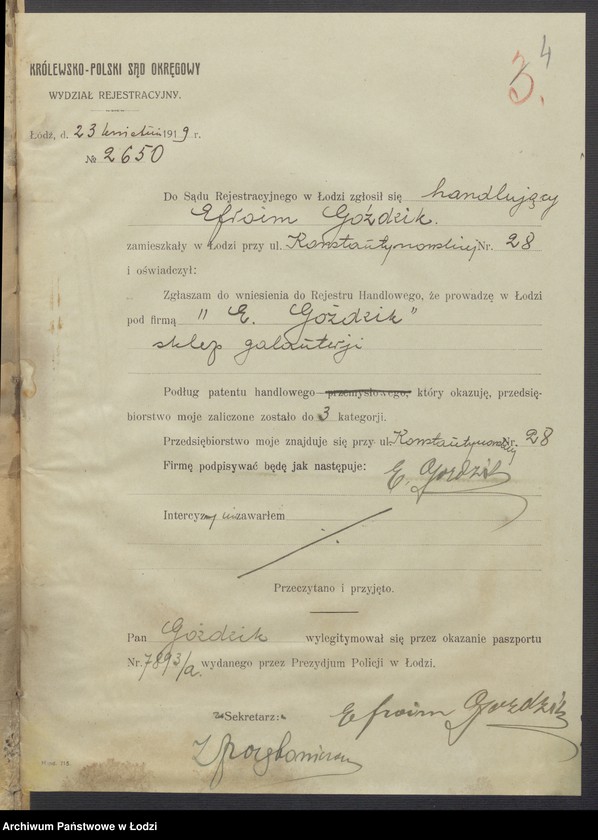 4
3.
KRÓLEWSKO-POLSKI SĄD OKRĘGOWY
WYDZIAŁ REJESTRACYJNY.
Łódź, d. 23 kwietnia 1919 r.
№ 2650
Do Sądu Rejestracyjnego w Łodzi zgłosił się handlujący
Efroim Goździk.
zamieszkały w Łodzi przy ul. Konstantynowskiej Nr. 28
i oświadczył:
Zgłaszam do wniesienia do Rejestru Handlowego, że prowadzę w Łodzi
pod firmą "E. Goździk"
sklep galanterji
Podług patentu handlowego przemysłowego, który okazuję, przedsię-
biorstwo moje zaliczone zostało do 3 kategorji.
Przedsiębiorstwo moje znajduje się przy ul. Konstantynowskiej Nr. 28
Firmę podpisywać będę jak następuje: E. Gozdzik
Intercyzy nie zawarłem
Przeczytano i przyjęto.
Pan Goździk wylegitymował się przez okazanie paszportu
Nr. 7893/a. wydanego przez Prezydjum Policji w Łodzi.
Sekretarz: Efroim Gozdzik
Archiwum Państwowe w Łodzi